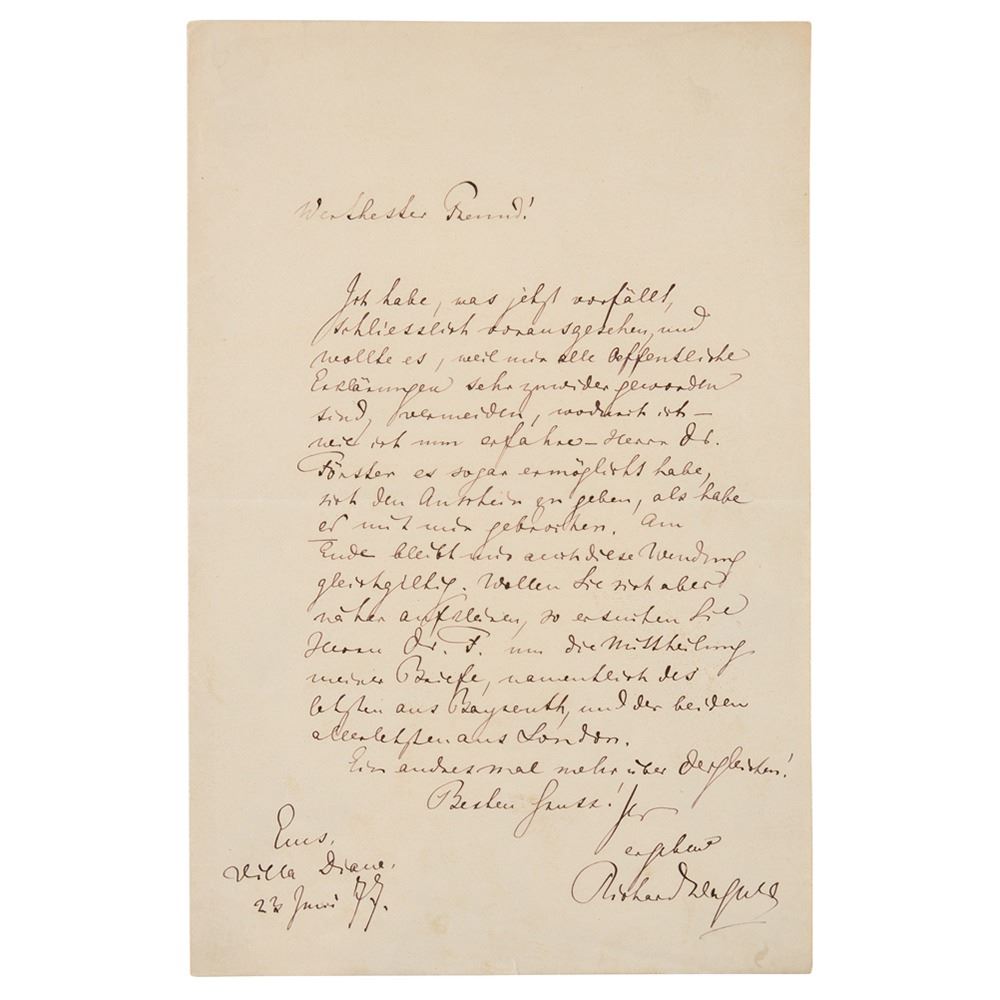 Werthester Freund!
Ich habe, was jetzt vorfällt,
schliesslich vorausgesehen, und
wollte es, weil mir alle öffentliche
Erklärungen sehr zuwider geworden
sind, vermeiden, wodurch ich –
wie ich nun erfahre – Herrn Dr.
Förster es sogar ermöglicht habe,
sich den Anschein zu geben, als habe
er mit mir gebrochen. Am
Ende bleibt mir auch diese Wendung
gleichgiltig. Wollen Sie sich aber
näher aufklären, so ersuchen Sie
Herrn Dr. F. um die Mittheilung
meiner Briefe, namentlich des
letzten aus Bayreuth, und der beiden
allerletzten aus London.
Ein andres mal mehr über dergleichen!
Besten Gruss! Ihr
ergebener
Richard Wagner
Ems.
Villa Diana.
Juni 77.